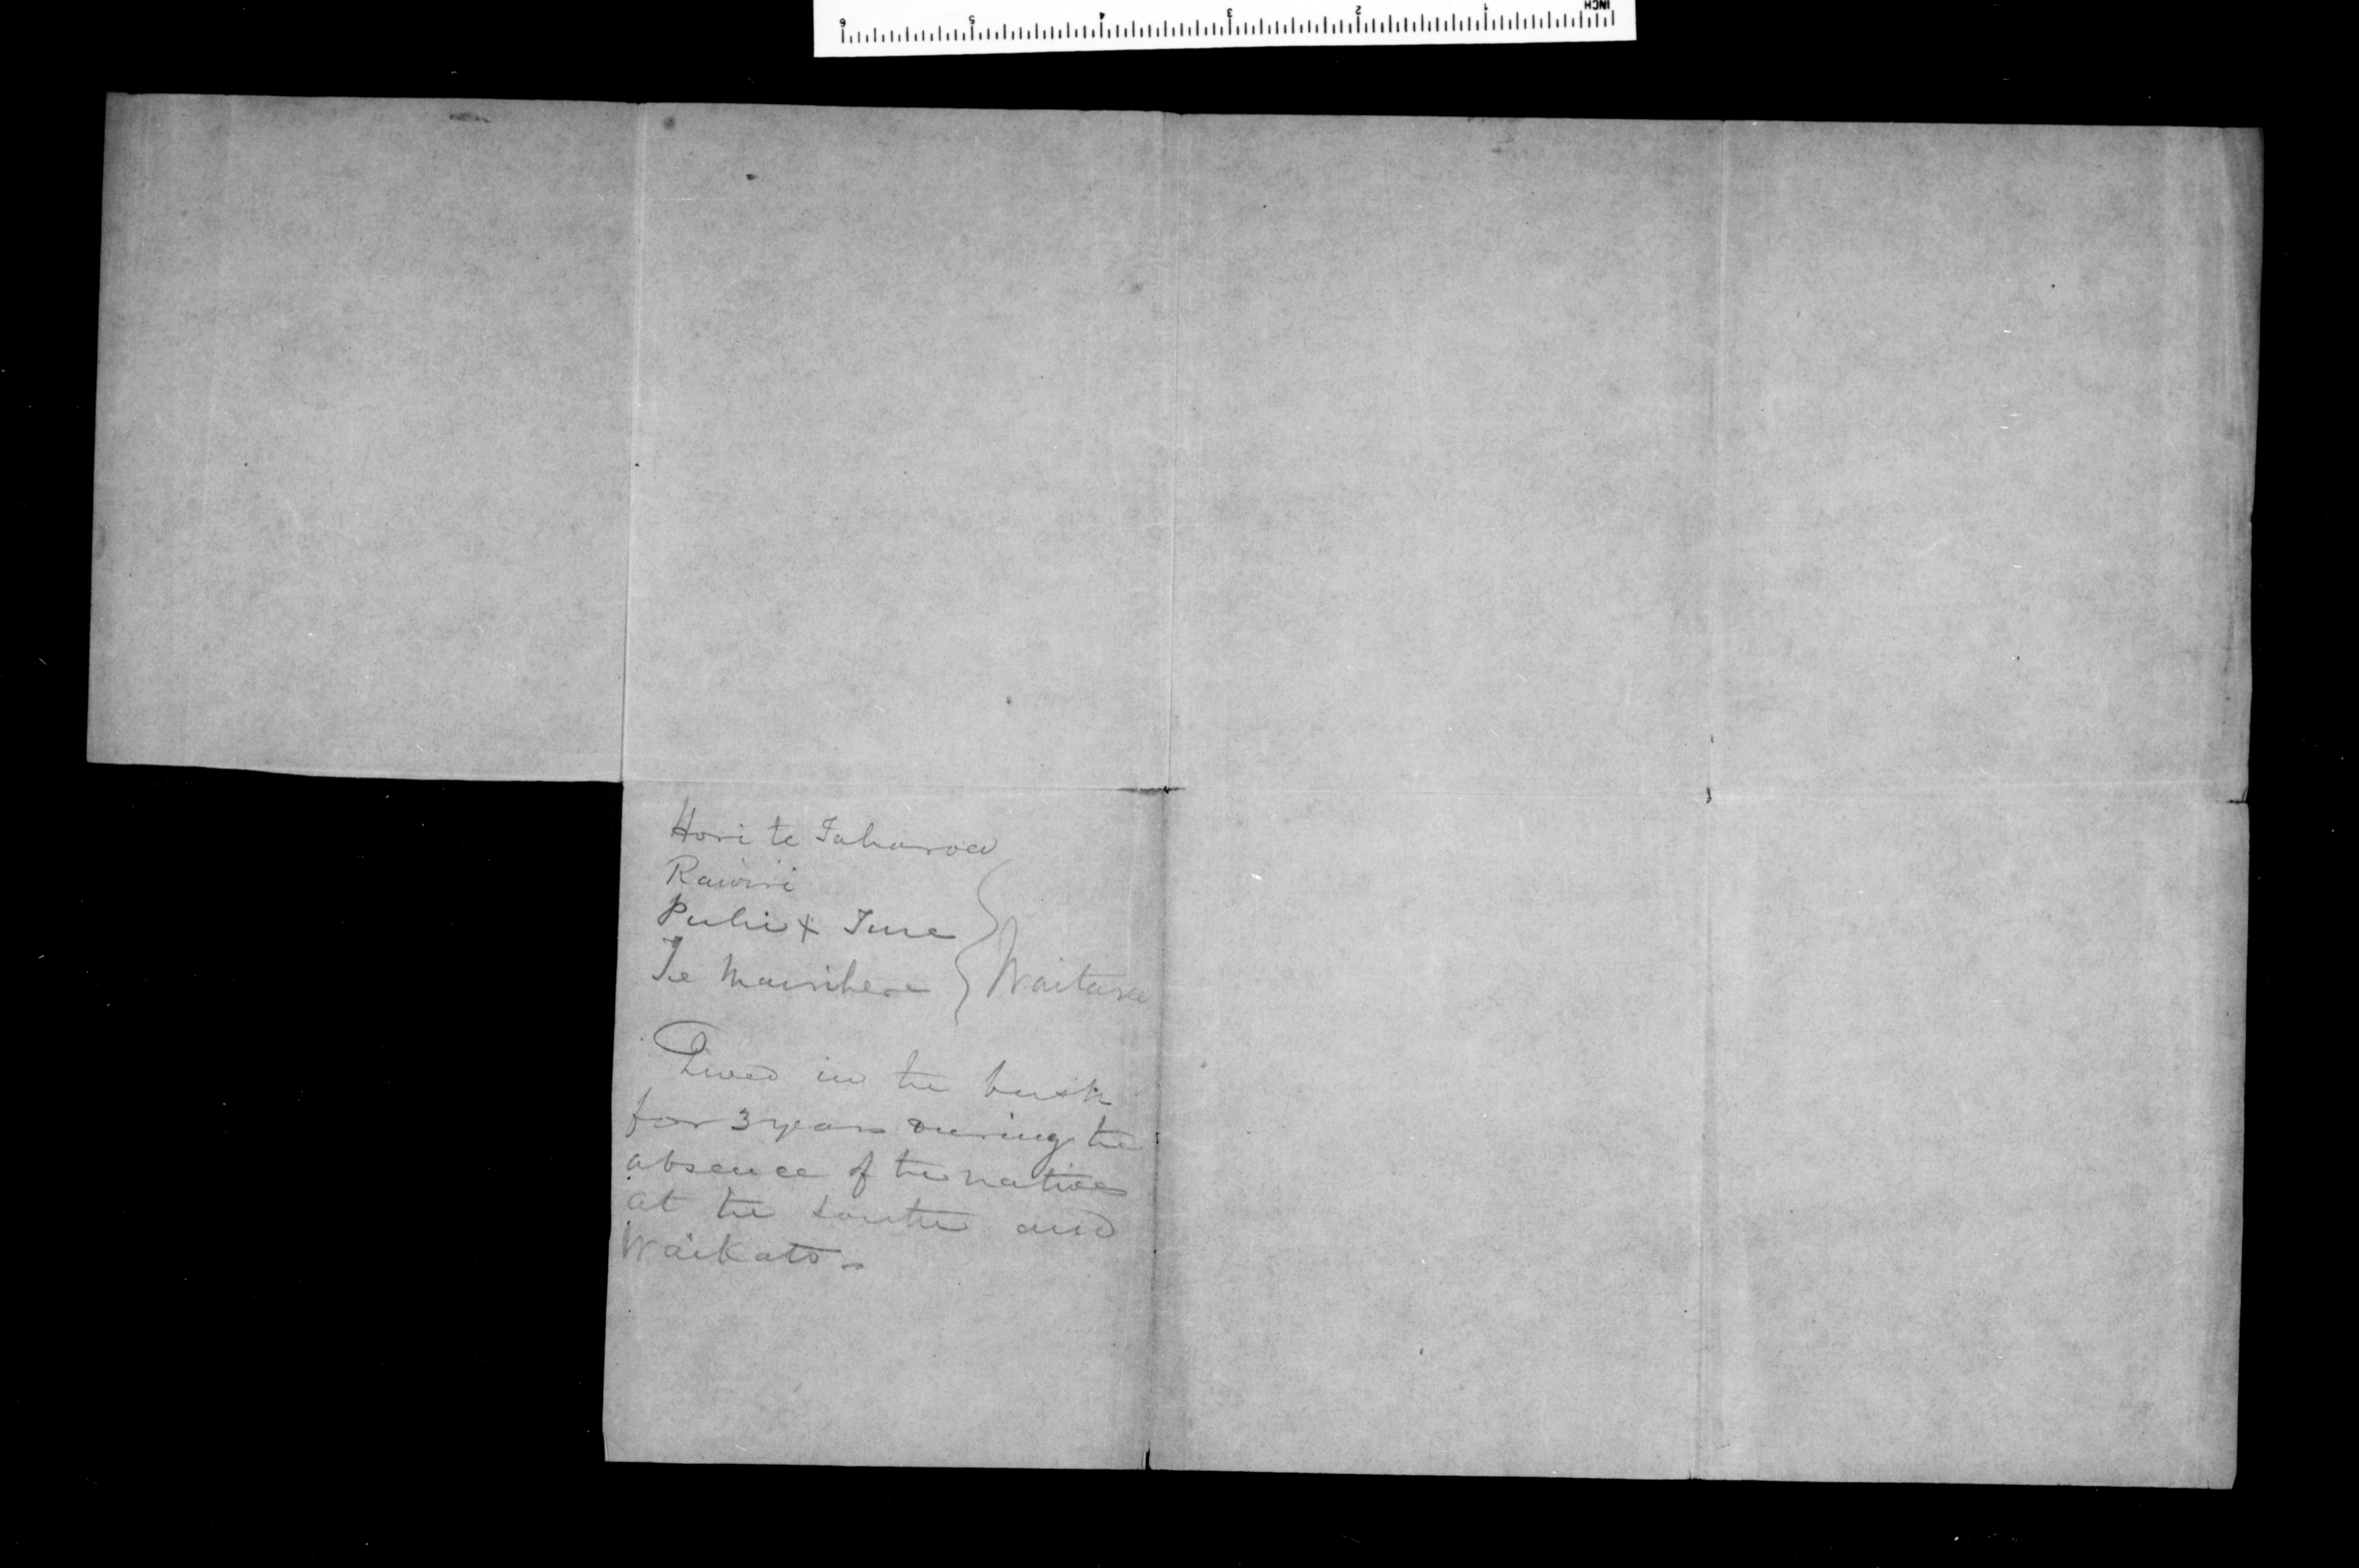 6 5 4 3 2 1 INCH
Hori te Taharoa
Rawiri
Puhi + Tune
Te Mawihere } Waitara
Lived in the bush
for 3 years during the
absence of the natives
at the south and
Waikato -